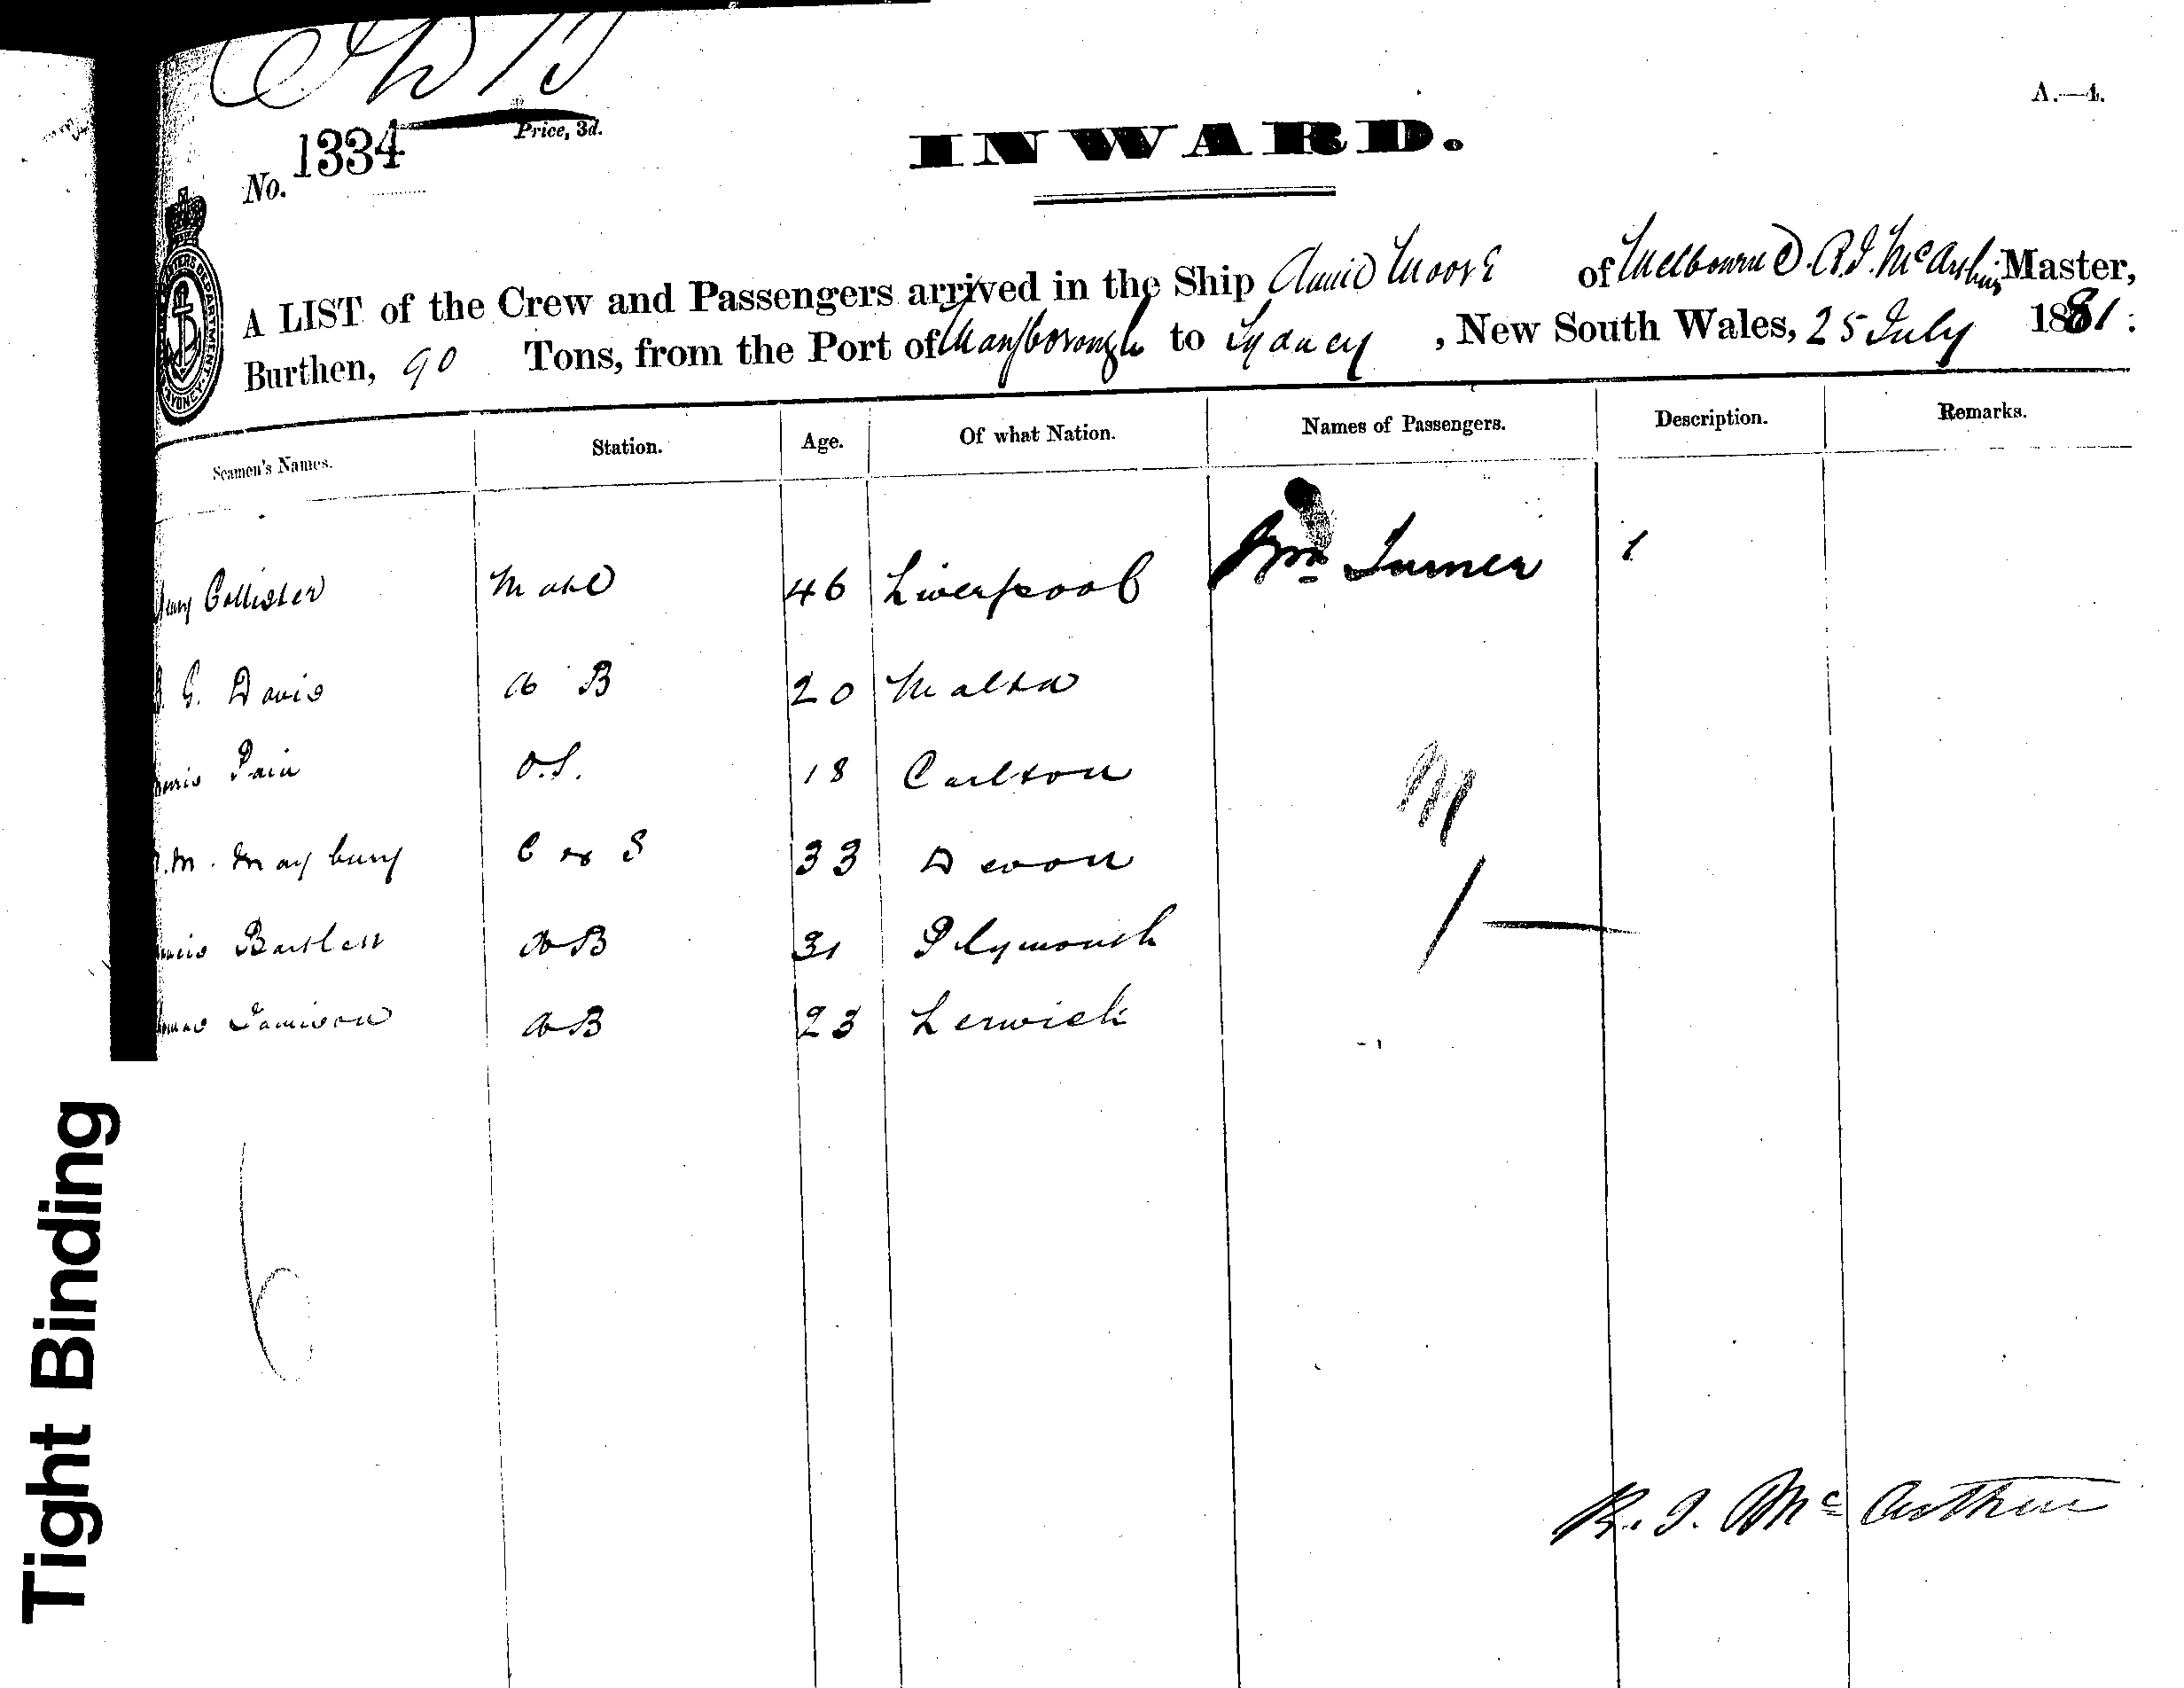 A.—4.
Price, 3d.
No. 1334
INWARD.
A LIST of the Crew and Passengers arrived in the Ship Annie Moore of Melbourne R. J. McArthur Master,
Burthen, 90 Tons, from the Port of Maryborough to Sydney, New South Wales, 25 July 1881.
Seamen's Names. Station. Age. Of what Nation. Names of Passengers. Description. Remarks.
Collister Mate 46 Liverpool Wm Turner 1
G. Davis A B 20 Malta
Pain O.S. 18 Carlton
M. Maybury C & S 33 Devon
Bartlett AB 31 Plymouth
Jamieson AB 23 Lerwick
M
1 —
6
R. J. McArthur
Tight Binding